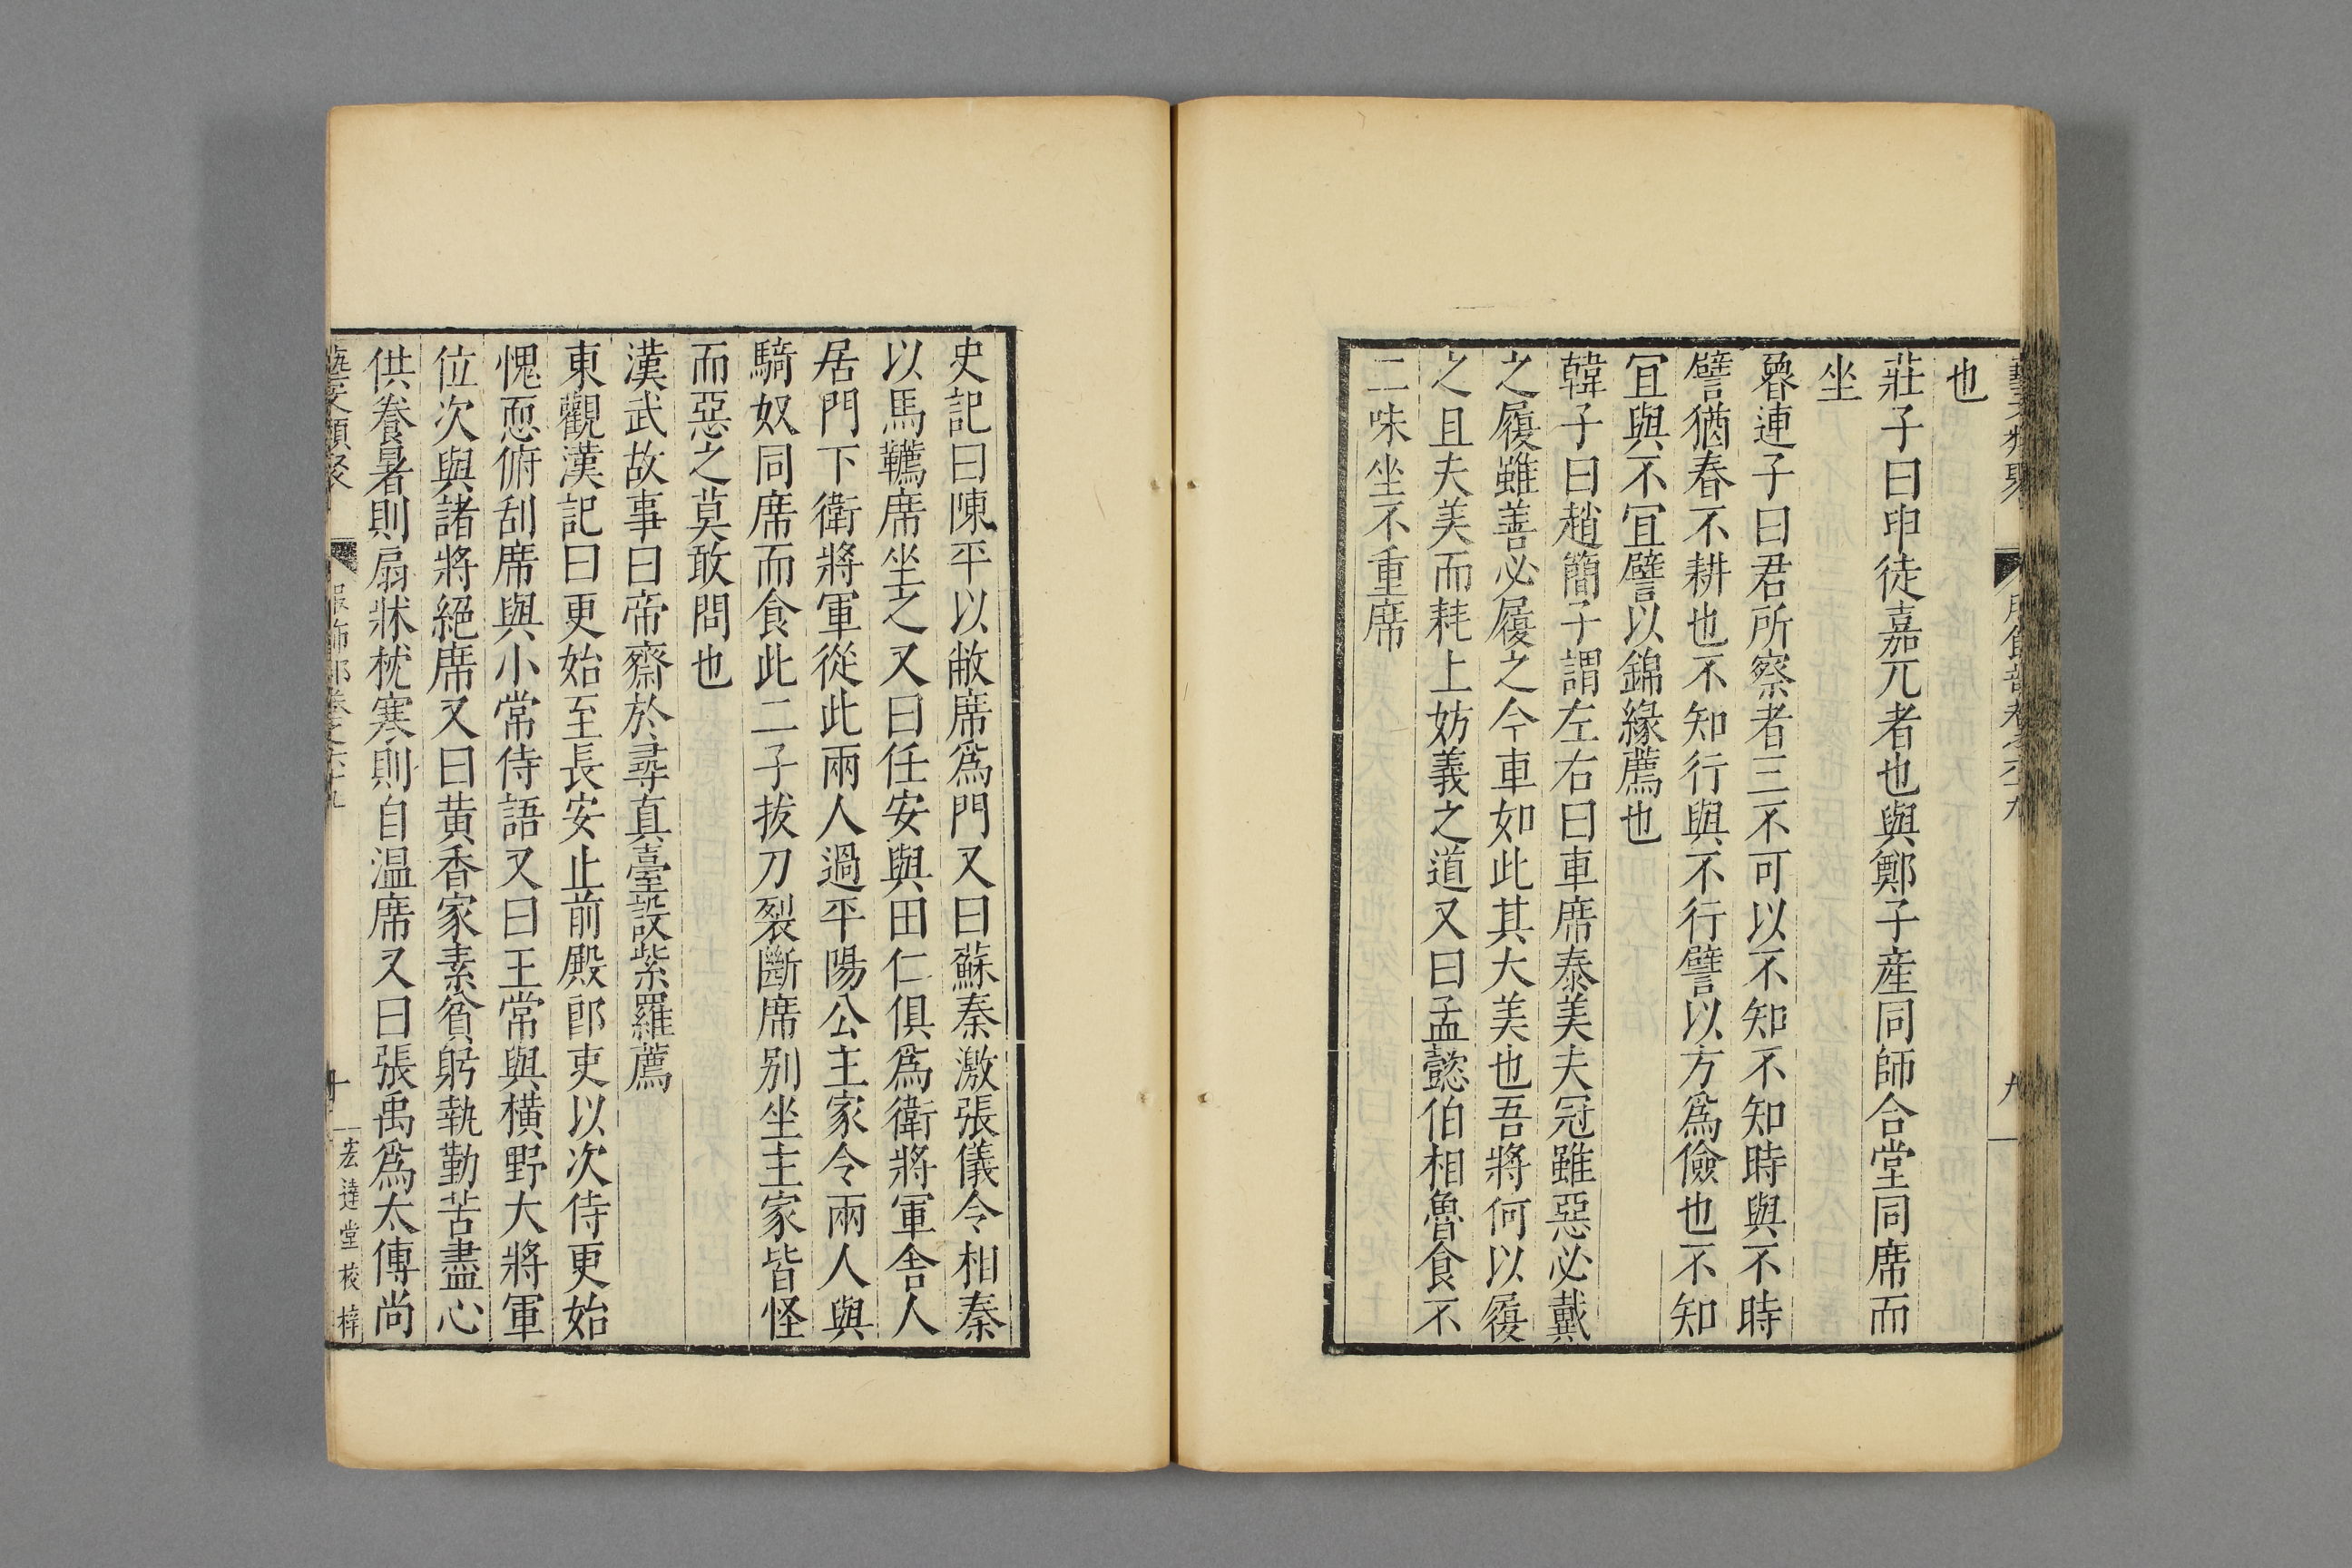 藝文類聚 服飾部卷之六十九 九
也
莊子曰申徒嘉兀者也與鄭子産同師合堂同席而
坐
魯連子曰君所察者三不可以不知不知時與不時
譬猶春不耕也不知行與不行譬以方爲儉也不知
冝與不冝譬以錦緣薦也
韓子曰趙簡子謂左右曰車席泰美夫冠雖惡必戴
之履雖善必履之今車如此其大美也吾將何以履
之且夫美而耗上妨義之道又曰孟懿伯相魯食不
二味坐不重席
史記曰陳平以敝席爲門又曰蘇秦激張儀令相秦
以馬韉席坐之又曰任安與田仁俱爲衛將軍舍人
居門下衛將軍從此兩人過平陽公主家令兩人與
騎奴同席而食此二子拔刀裂斷席别坐主家皆怪
而惡之莫敢問也
漢武故事曰帝齋於尋真臺設紫羅薦
東觀漢記曰更始至長安止前殿郎吏以次侍更始
愧恧俯刮席與小常侍語又曰王常與橫野大將軍
位次與諸將絕席又曰黄香家素貧躬執勤苦盡心
供養暑則扇牀枕寒則自温席又曰張禹爲太傅尚
藝文類聚 服飾部卷之六十九 十 宏達堂校梓